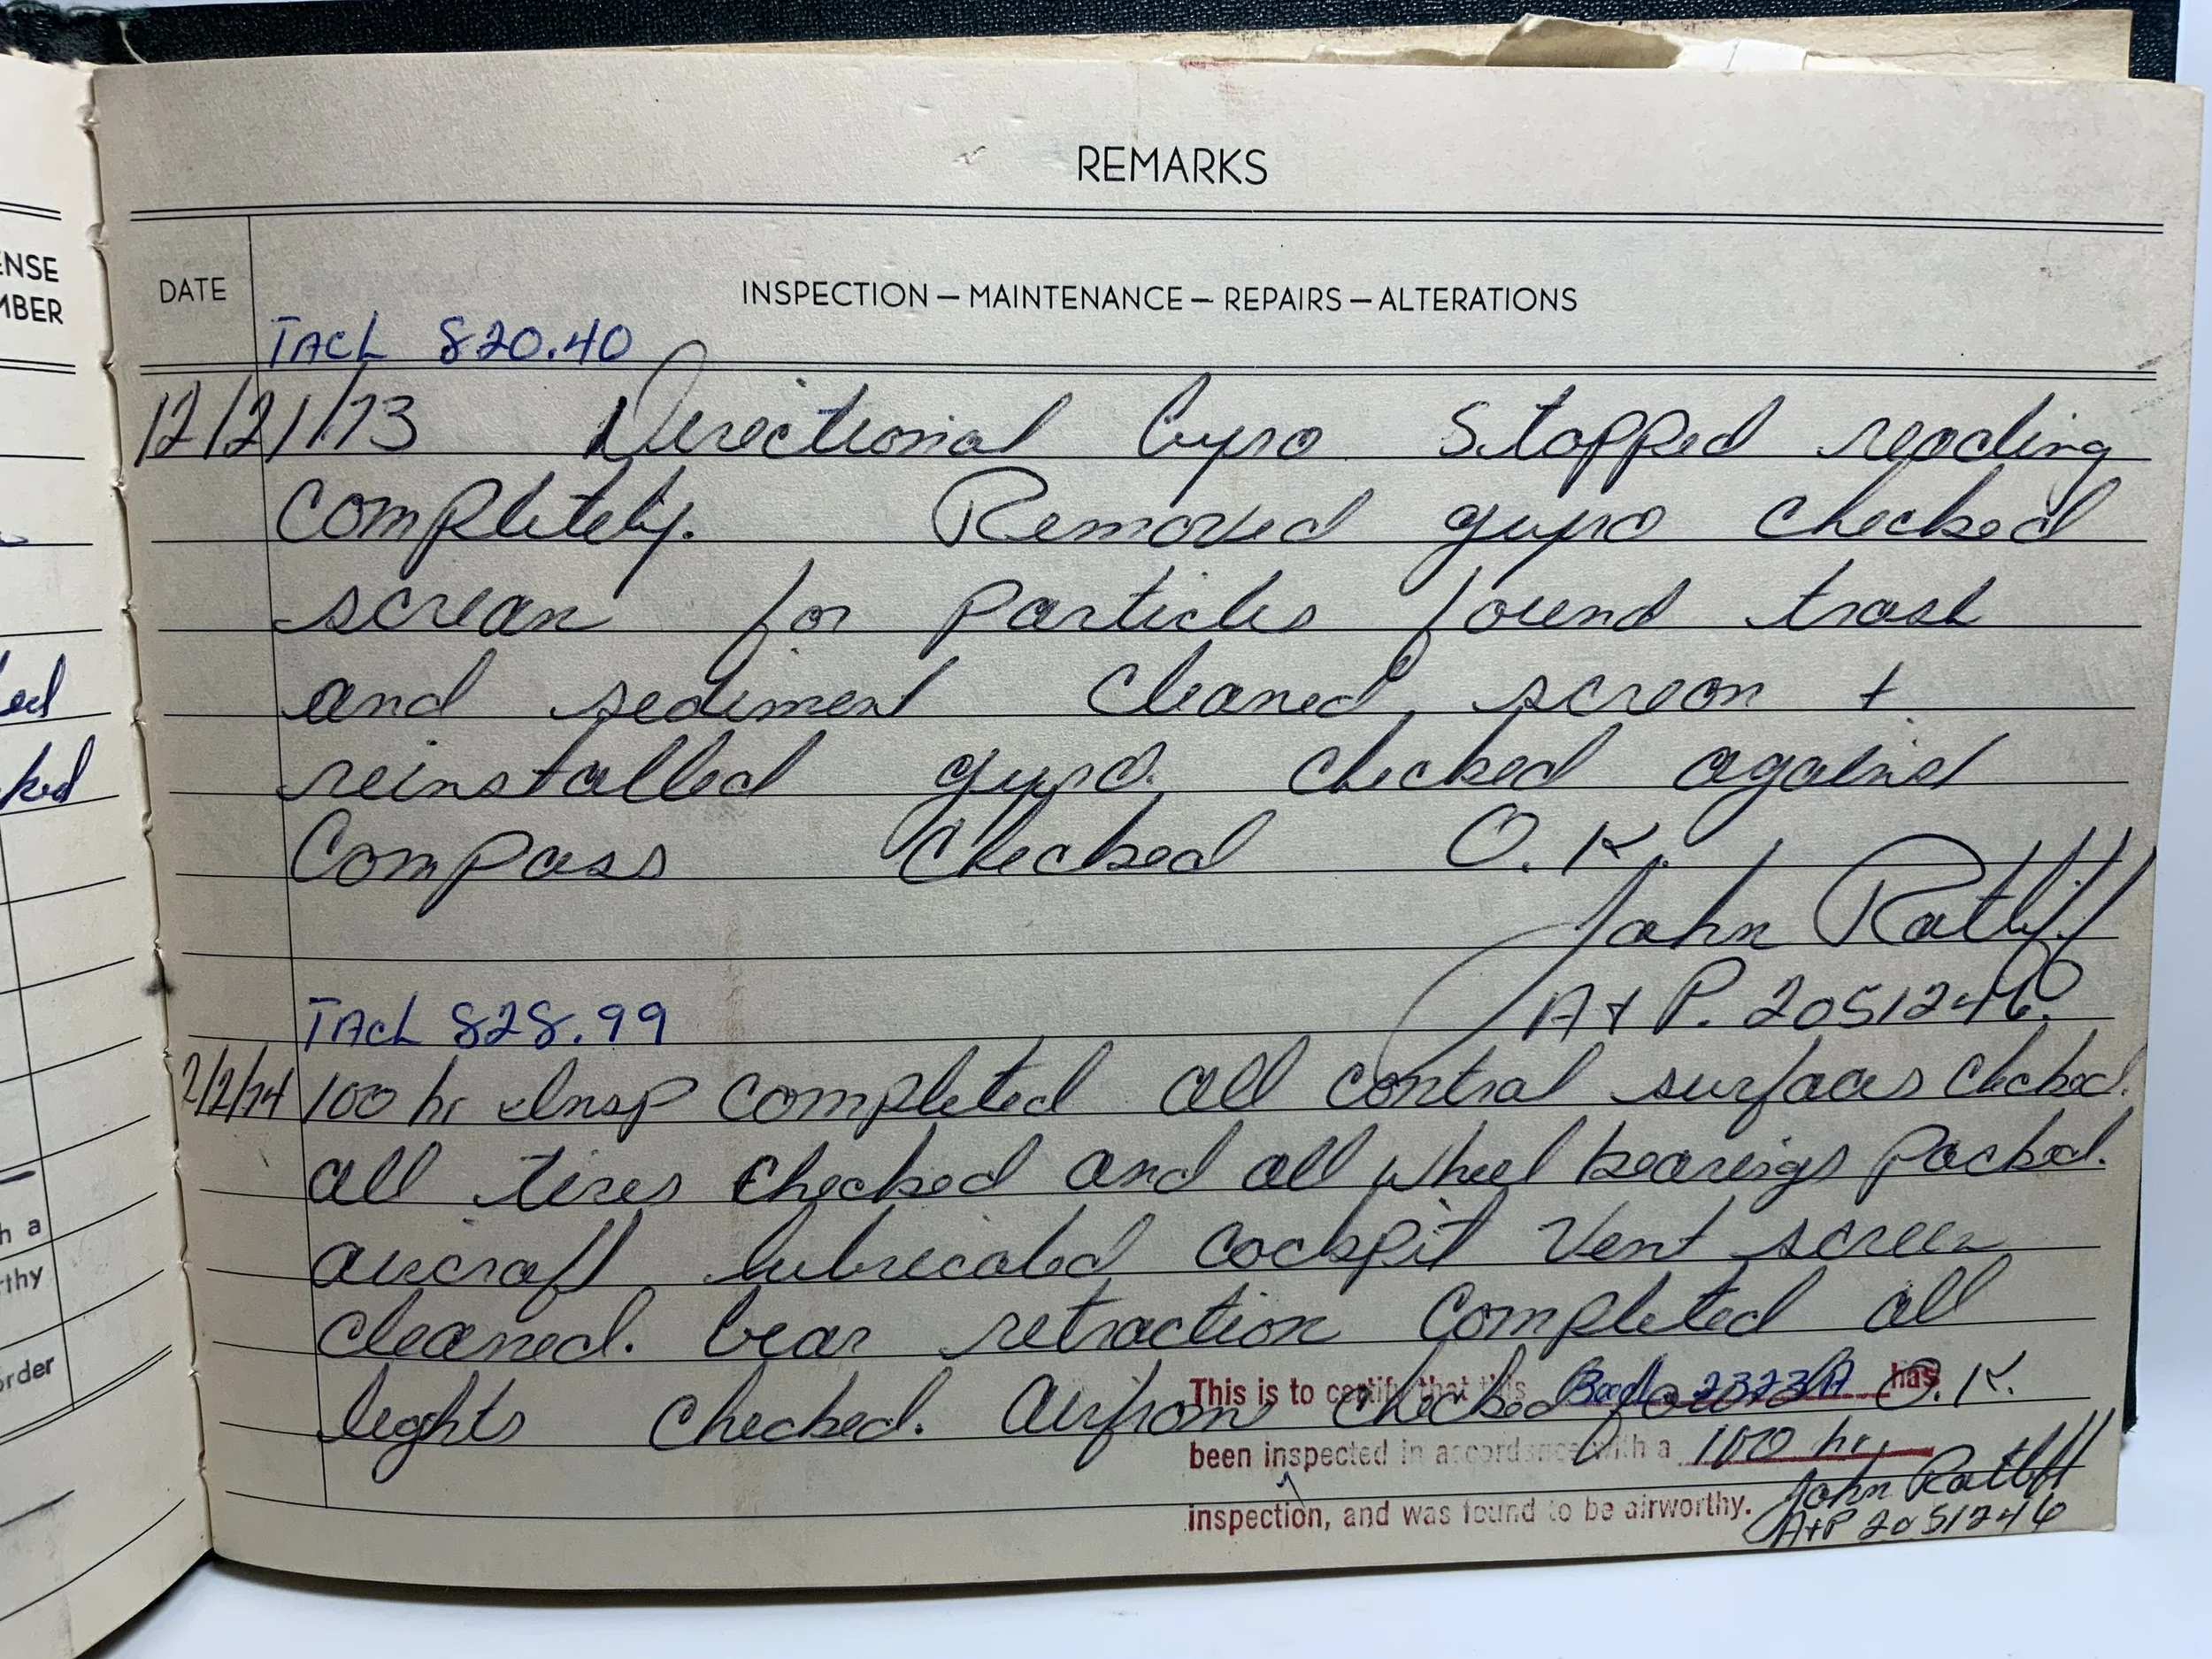 REMARKS
ENSE
MBER
DATE
INSPECTION — MAINTENANCE — REPAIRS — ALTERATIONS
TACH 820.40
12/21/73 Directional Gyro Stopped reading
Completely. Removed gyro checked
screan for particles found trash
and sediment Cleaned screan +
reinstalled gyro. Checked against
Compass Checked O.K.
John Ratliff
A+P. 2051246
TACH 828.99
2/2/74 100 hr Insp completed all control surfaces checked.
all tires checked and all wheel bearings packed.
aircraft lubricated cockpit vent screen
cleaned. Gear retraction completed all
lights checked. Airframe checked found O.K.
This is to certify that this 2323A has
been inspected in accordance with a 100 hr.
inspection, and was found to be airworthy. John Ratliff
A+P 2051246
ked
h a
rthy
order